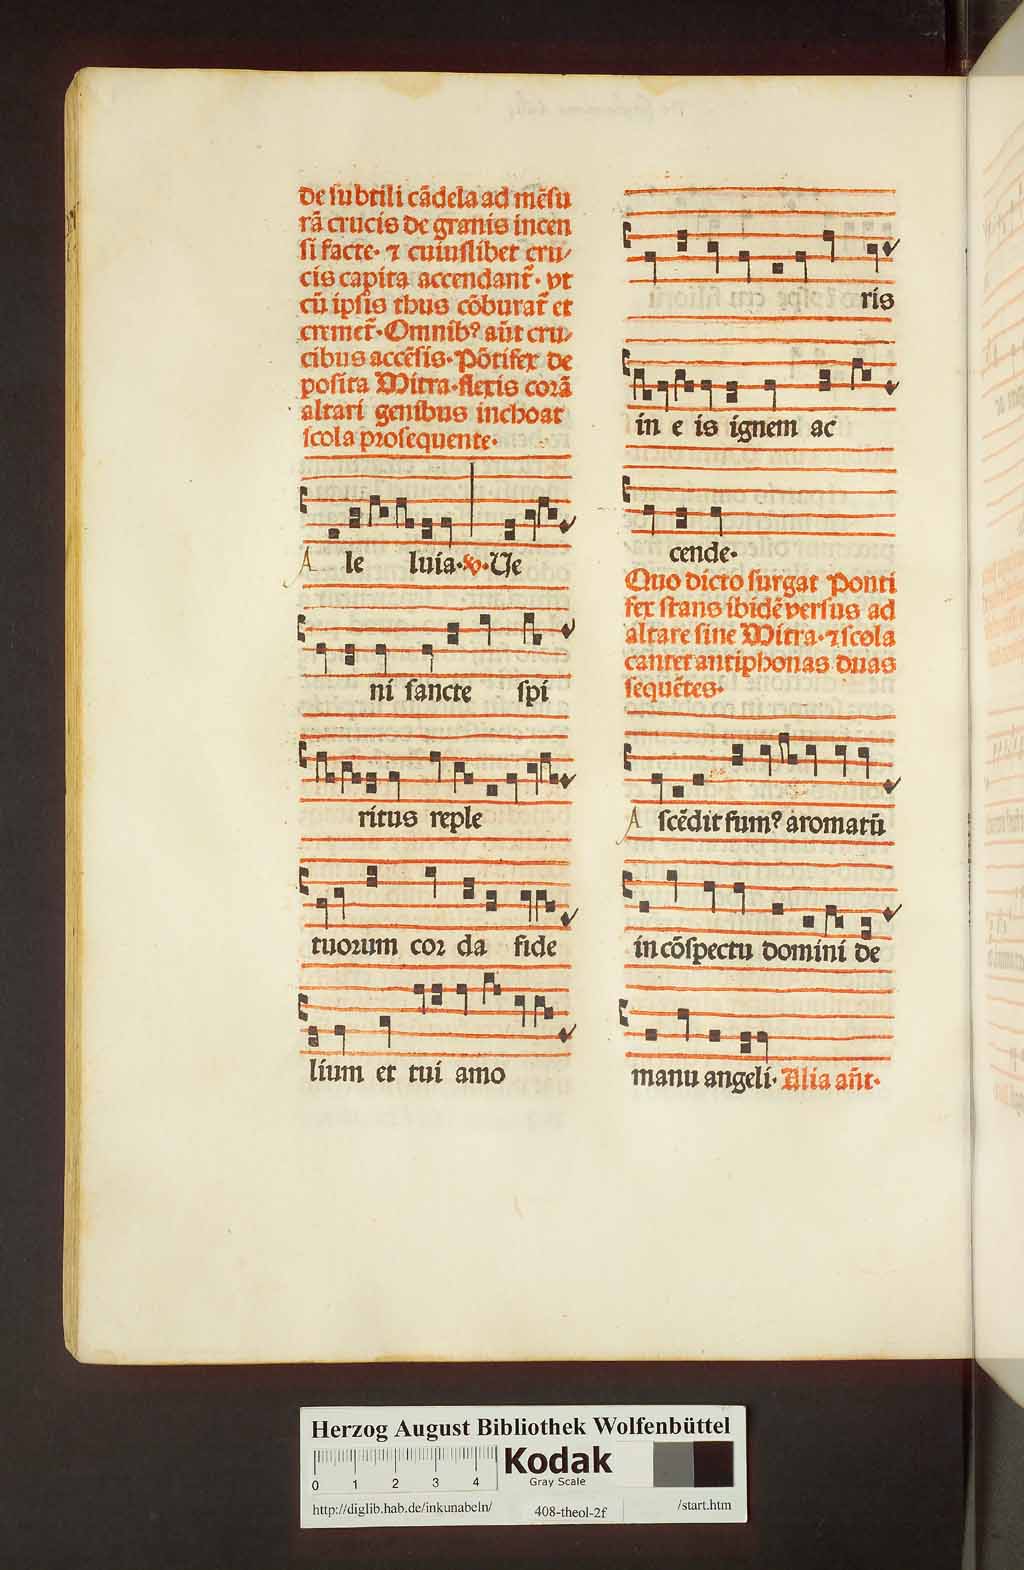 de subtili cãdela ad mẽsu
rã crucis de granis incen
si facte· ⁊ cuiuslibet cru/
cis capita accendant̃· vt
cũ ipsis thus cõburat̃ et
cremet̃· Omnib⁹ aũt cru/
cibus accẽsis· Põtifex de
posita Mitra· flexis corã
altari genibus inchoat
scola prosequente·
A le luia· ℣· Ve
ni sancte spi
ritus reple
tuorum cor da fide
lium et tui amo
ris
in e is ignem ac
cende·
Quo dicto surgat Ponti
fex stans ibidẽ versus ad
altare sine Mitra· ⁊ scola
cantet antiphonas duas
sequẽtes·
A scẽdit fum⁹ aromatũ
in cõspectu domini de
manu angeli· Alia añt·
Herzog August Bibliothek Wolfenbüttel
0 1 2 3 4 Kodak
Gray Scale
http://diglib.hab.de/inkunabeln/ 408-theol-2f /start.htm